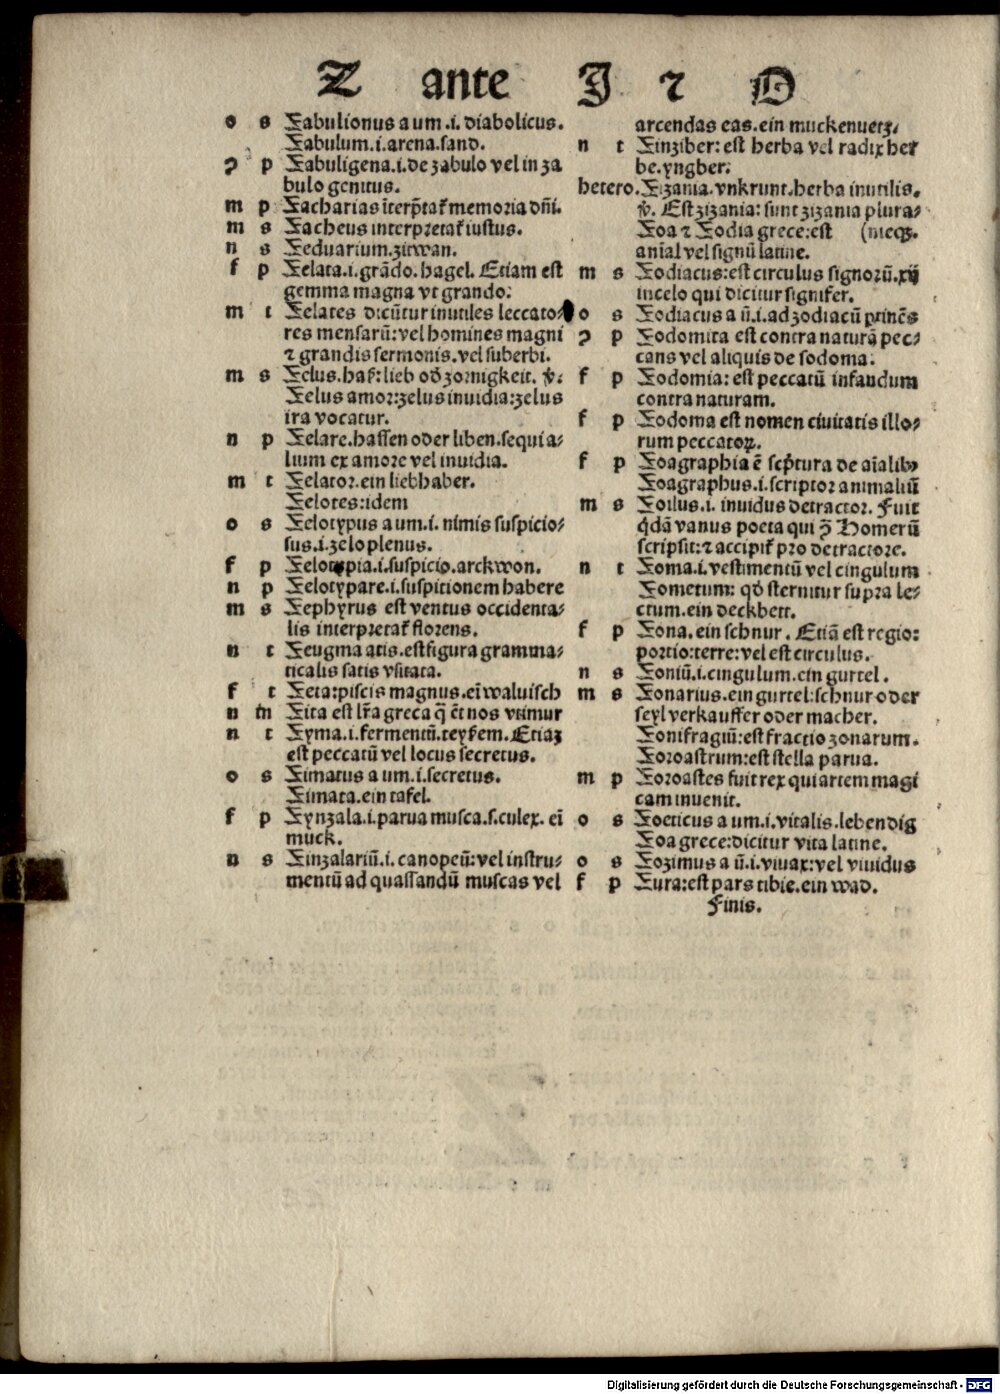 Z ante J ⁊ O
o s Zabulionus a um .i. diabolicus.
Zabulum .i. arena. sand.
ꝯ p Zabuligena .i. de zabulo vel in za
bulo genitus.
m p Zacharias īterp̄tat᷑ memoria dn̄i.
m s Zacheus interpretat᷑ iustus.
n s Zeduarium. zitwan.
f p Zelata .i. grādo. hagel. Etiam est
gemma magna vt grando.
m t Zelates dicūtur inutiles leccato⸗
res mensarū: vel homines magni
⁊ grandis sermonis. vel suberbi.
m s Zelus. haß: lieb oď zornigkeit. v̓.
Zelus amor: zelus inuidia: zelus
ira vocatur.
n p Zelare. hassen oder liben. sequi a⸗
lium ex amore vel inuidia.
m t Zelator. ein liebhaber.
Zelotes: idem
o s Zelotypus a um .i. nimis suspicio⸗
sus .i. zelo plenus.
f p Zelotypia .i. suspicio. arckwon.
n p Zelotypare .i. suspitionem habere
m s Zephyrus est ventus occidenta⸗
lis interpretat᷑ florens.
n t Zeugma atis. est figura gramma⸗
ticalis satis vsitata.
f t Zeta: piscis magnus. eī waluisch
n m̄ Zita est lr̄a greca q̄ et̄ nos vtimur
n t Zyma .i. fermentū. teyßem. Etiaꝫ
est peccatū vel locus secretus.
o s Zimatus a um .i. secretus.
Zimata. ein tafel.
f p Zynzala .i. parua musca. s. culex. eī
muck.
n s Zinzalariū .i. canopeū: vel instru⸗
mentū ad quassandū muscas vel
arcendas eas. ein muckenuetz.
n t Zinziber: est herba vel radix her
be. yngber.
hetero. Zizania. vnkrunt. herba inutilis.
v̓. Est zizania: sunt zizania plura⸗
Zoa ⁊ Zodia grece: est (meqꝫ.
anīal vel signū latine.
m s Zodiacus: est circulus signorū. xij
in celo qui dicitur signifer.
o s Zodiacus a ū .i. ad zodiacū ptinēs
ꝯ p Zodomita est contra naturā pec⸗
cans vel aliquis de sodoma.
f p Zodomia: est peccatū infandum
contra naturam.
f p Zodoma est nomen ciuitatis illo⸗
rum peccatoꝝ.
f p Zoagraphia ē scp̄tura de aīalibꝰ
Zoagraphus .i. scriptor animaliū
m s Zoilus .i. inuidus detractor. Fuit
q̇dā vanus poeta qui ꝯ̄ Homerū
scripsit: ⁊ accipit᷑ pro detractore.
n t Zoma .i. vestimentū vel cingulum
Zometum: qď sternitur supra le⸗
ctum. ein deckbett.
f p Zona. ein schnur. Etiā est regio:
portio: terre: vel est circulus.
n s Zoniū .i. cingulum. ein gurtel.
m s Zonarius. ein gurtel: schnur oder
seyl verkauffer oder macher.
Zonifragiū: est fractio zonarum.
Zoroastrum: est stella parua.
m p Zoroastes fuit rex qui artem magi
cam inuenit.
o s Zoeticus a um .i. vitalis. lebendig
Zoa grece: dicitur vita latine.
o s Zozimus a ū .i. viuax: vel viuidus
f p Zura: est pars tibie. ein wad.
Finis.
Digitalisierung gefördert durch die Deutsche Forschungsgemeinschaft - DFG